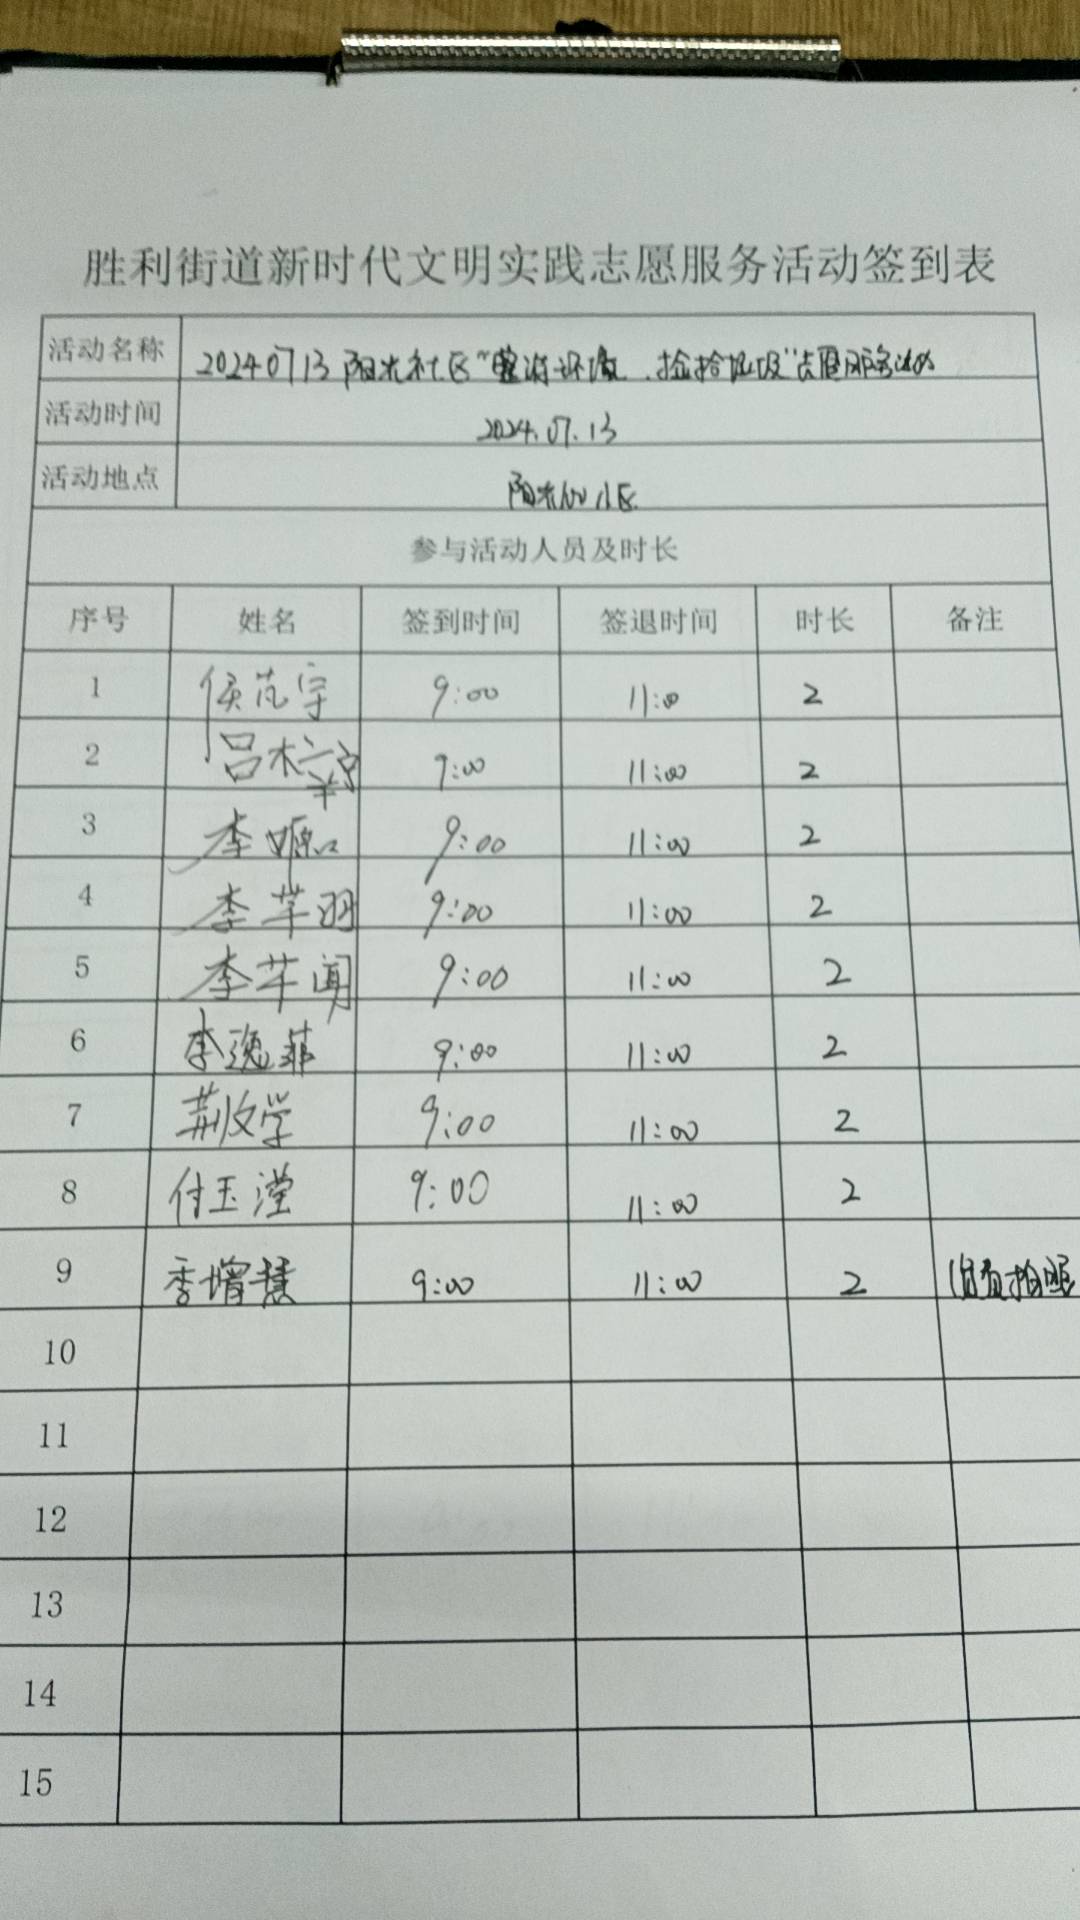 胜利街道新时代文明实践志愿服务活动签到表
活动名称 20240713 阳光社区“整治环境、捡拾垃圾”志愿服务活动
活动时间 2024.07.13
活动地点 阳光
参与活动人员及时长
序号 姓名 签到时间 签退时间 时长 备注
1 侯芃宇 9:00 11:00 2
2 吕 9:00 11:00 2
3 李 9:00 11:00 2
4 李芊羽 9:00 11:00 2
5 李芊闻 9:00 11:00 2
6 李逸菲 9:00 11:00 2
7 荆文学 9:00 11:00 2
8 付玉滢 9:00 11:00 2
9 季增慧 9:00 11:00 2 负责拍照
10
11
12
13
14
15